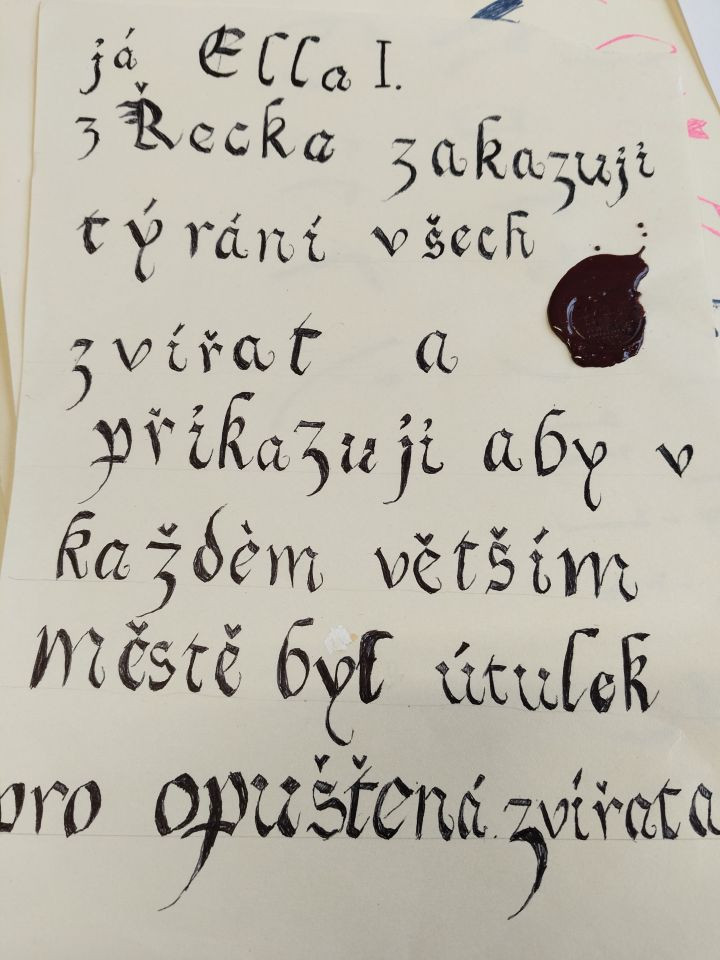 já Ella I.
z Řecka zakazuji
týrání všech
zvířat a
přikazuji aby v
každém větším
městě byl útulek
pro opuštěná zvířata